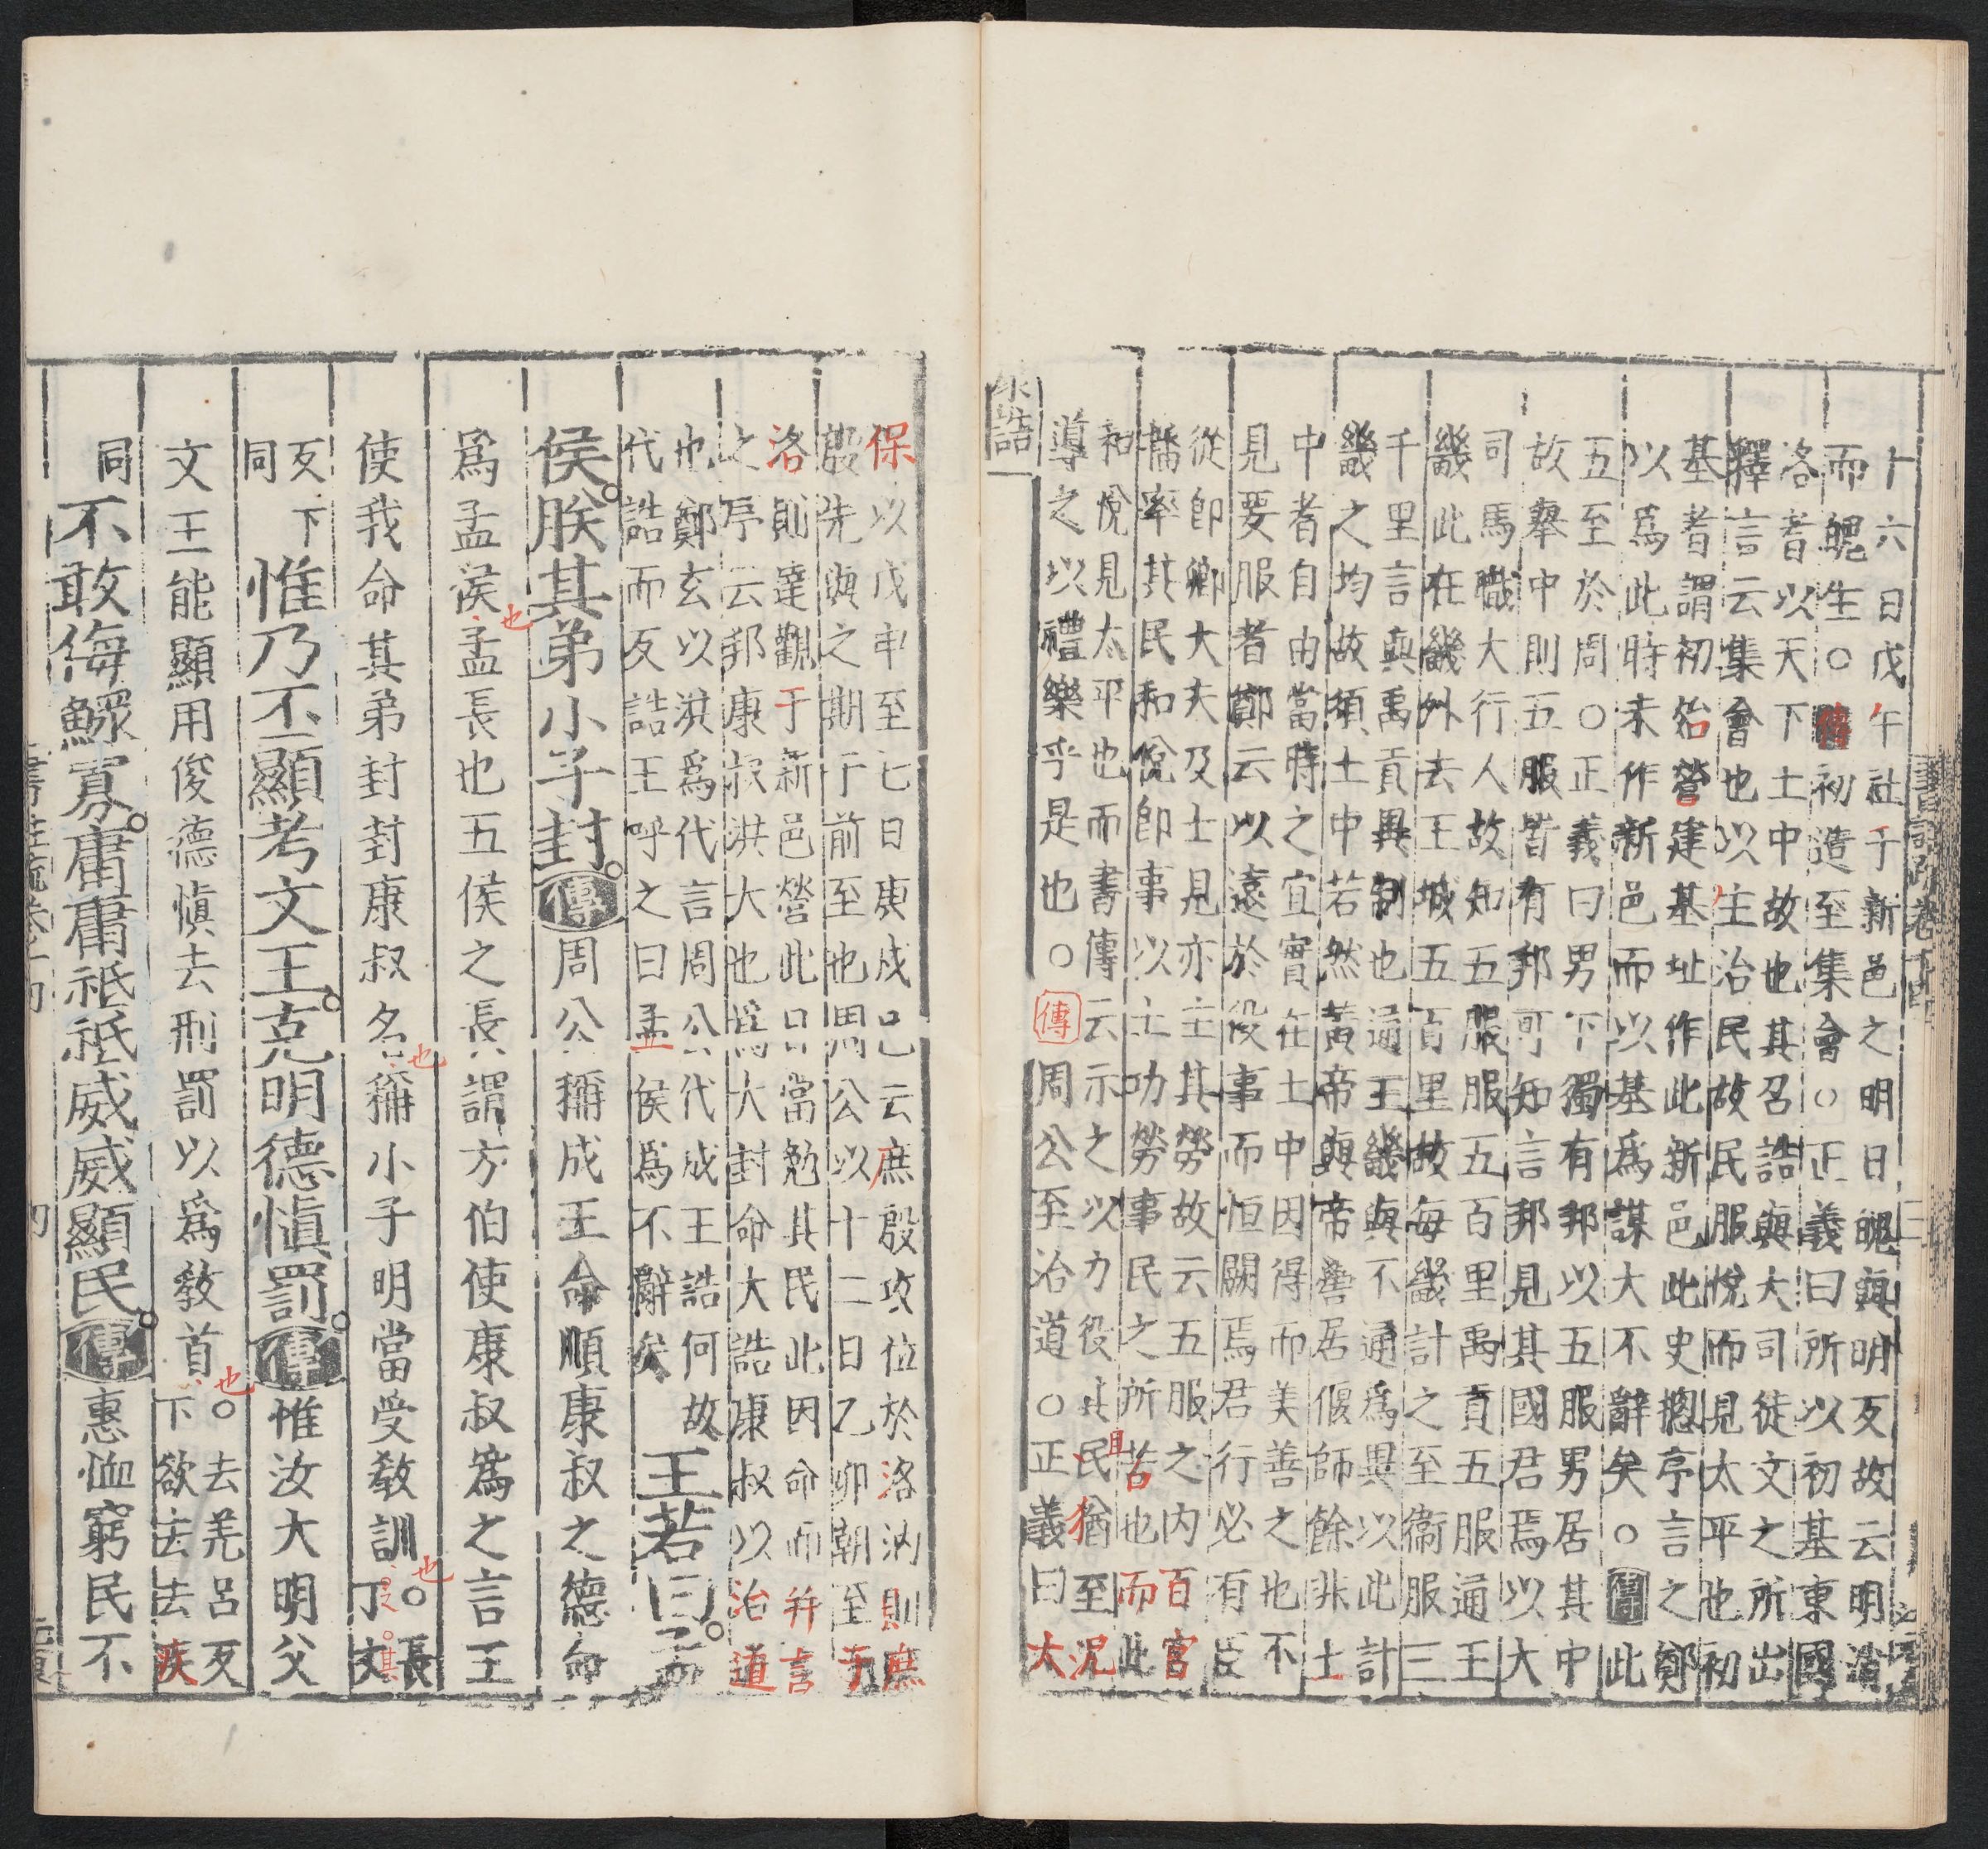 卜六日戊午社于新邑之明日魄與明反故云明消
而魄生○傳初造至集會○正義曰所以初基東國
洛者以天下土中故也其召誥與大司徒文之所出
釋言云集會也以主治民故民服悅而見太平也初
基者謂初始營建基址作此新邑此史摠序言之鄭
以爲此時未作新邑而以基爲謀大不辭矣○傳此
五至於周○正義曰男下獨有邦以五服男居其中
故舉中則五服皆有邦可知言邦見其國君焉以大
司馬職大行人故知五服服五百里禹貢五服通王
畿此在畿外去王城五百里故每畿計之至衞服三
千里言與禹貢異制也通王畿與不通爲異以此計
畿之均故須土中若然黃帝與帝嚳居偃師餘非土
中者自由當時之宜實在土中因得而美善之也不
見要服者鄭云以遠於役事而恒闕焉君行必有臣
從卽卿大夫及士見亦主其勞故云五服之內百官
播率其民和悅卽事以土功勞事民之所苦也而此
和悅見太平也而書傳云示之以力役其民且猶至況
導之以禮樂乎是也○傳周公至治道○正義曰大
康誥
保以戊申至七日庚戌已云庶殷攻位於洛汭則庶
殷先與之期于前至也周公以十二日乙卯朝至于
洛則達觀于新邑營此日當勉其民此因命而并言
之序云邦康叔洪大也爲大封命大誥康叔以治道
也鄭玄以洪爲代言周公代成王誥何故
代誥而反誥王呼之曰孟侯爲不辭矣
王若曰孟
侯朕其弟小子封傳周公稱成王命順康叔之德命
爲孟侯也孟長也五侯之長謂方伯使康叔爲之言王
使我命其弟封封康叔名也稱小子明當受敎訓也○長
丁丈反下同
惟乃丕顯考文王克明德愼罰傳惟汝大明父
文王能顯用俊德愼去刑罰以爲敎首也○去羌呂反
下欲去去疾同
不敢侮鰥寡庸庸祗祗威威顯民傳惠恤窮民不